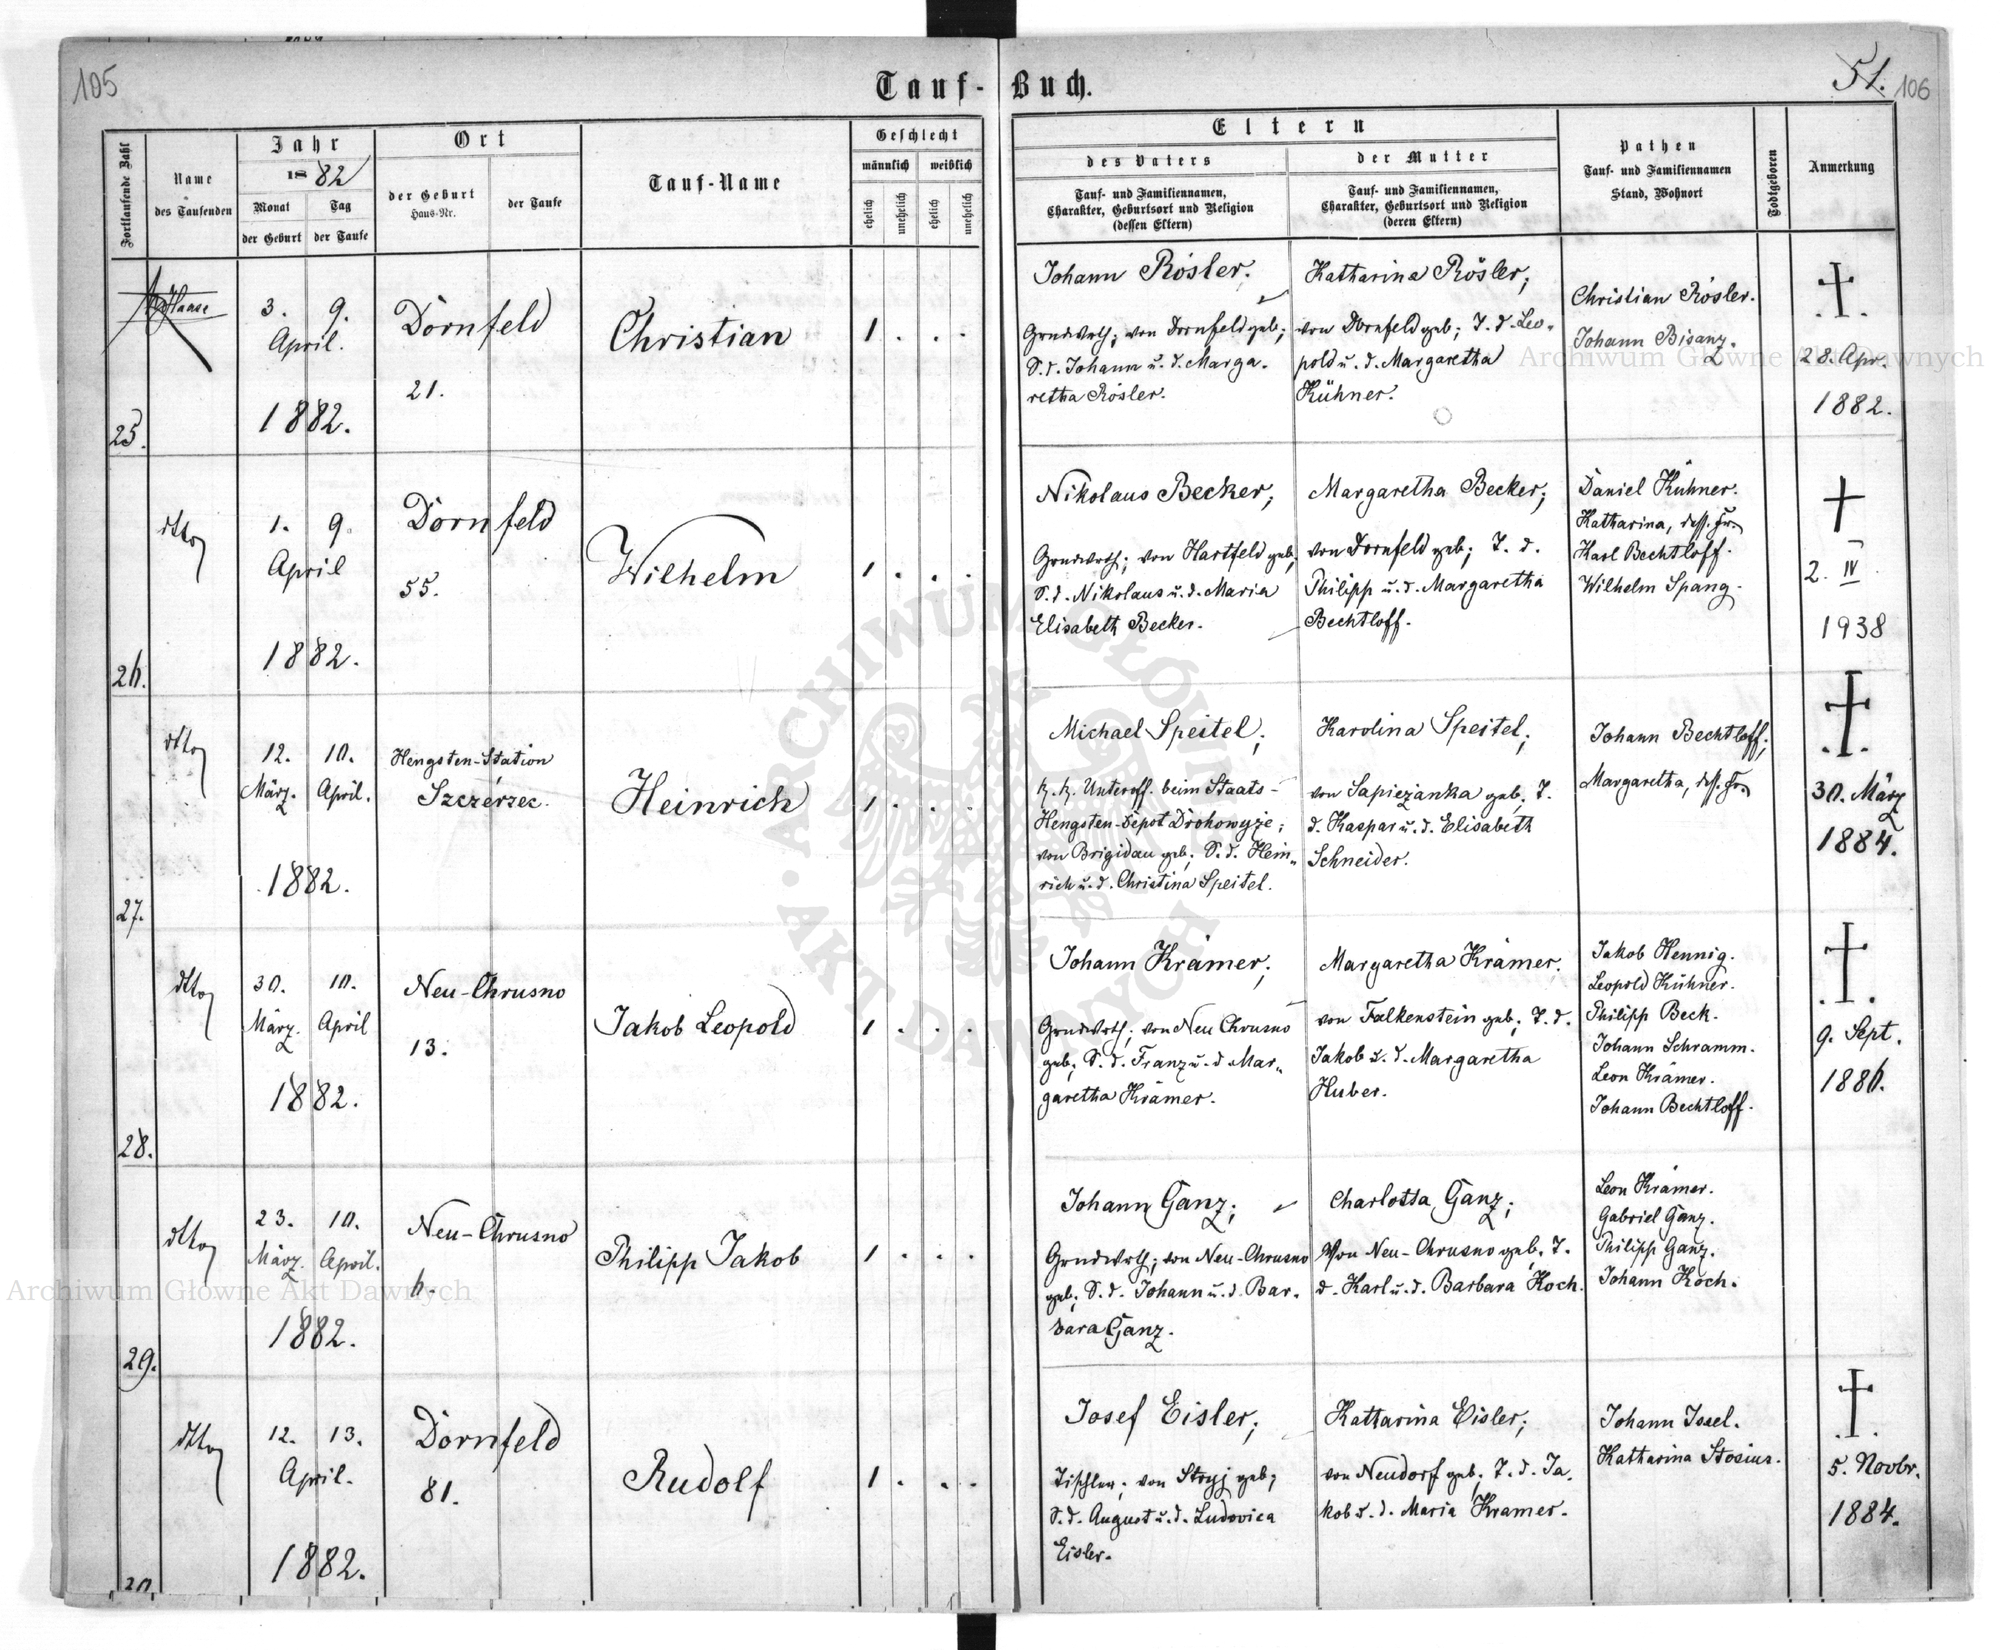 105
Tauf-Buch.
51. 106
Fortlaufende Zahl
Name
des Taufenden
Jahr
1882
Monat
Tag
der Geburt
der Taufe
Ort
der Geburt
Haus-Nr.
der Taufe
Tauf-Name
Geschlecht
männlich
weiblich
ehelich
unehelich
ehelich
unehelich
Eltern
des Vaters
Tauf- und Familiennamen,
Charakter, Geburtsort und Religion
(dessen Eltern)
der Mutter
Tauf- und Familiennamen,
Charakter, Geburtsort und Religion
(deren Eltern)
Pathen
Tauf- und Familiennamen
Stand, Wohnort
Todtgeboren
Anmerkung
25.
Haase
3. 9.
April.
1882.
Dornfeld
21.
Christian
1 . . .
Johann Rösler;
Grundwrth; von Dornfeld geb;
S. d. Johann u. d. Marga-
retha Rösler.
Katharina Rösler;
von Dornfeld geb; T. d. Leo-
pold u. d. Margaretha
Kühner.
Christian Rösler.
Johann Bisanz.
28. Apr.
1882.
26.
dtto
1. 9.
April
1882.
Dornfeld
55.
Wilhelm
1 . . .
Nikolaus Becker;
Grundwrth; von Hartfeld geb;
S. d. Nikolaus u. d. Maria
Elisabeth Becker.
Margaretha Becker;
von Dornfeld geb; T. d.
Philipp u. d. Margaretha
Bechtloff.
Daniel Kühner.
Katharina, dess. Fr.
Karl Bechtloff.
Wilhelm Spang.
2. IV.
1938
27.
dtto
12. 10.
März. April.
1882.
Hengsten-Station
Szczérzec.
Heinrich
1 . . .
Michael Speitel;
k. k. Unteroff. beim Staats-
Hengsten-Depot Drohowyże;
von Brigidau geb; S. d. Hein-
rich u. d. Christina Speitel.
Karolina Speitel;
von Sapieżanka geb; T.
d. Kaspar u. d. Elisabeth
Schneider.
Johann Bechtloff;
Margaretha, dess. Fr.
30. März
1884.
28.
dtto
30. 10.
März. April
1882.
Neu-Chrusno
13.
Jakob Leopold
1 . . .
Johann Krämer;
Grundwrth; von Neu Chrusno
geb; S. d. Franz u. d Mar-
garetha Krämer.
Margaretha Krämer.
von Falkenstein geb; T. d.
Jakob u. d. Margaretha
Huber.
Jakob Hennig.
Leopold Kühner.
Philipp Beck.
Johann Schramm.
Leon Krämer.
Johann Bechtloff.
9. Sept.
1886.
29.
dtto
23. 10.
März. April.
1882.
Neu-Chrusno
6.
Philipp Jakob
1 . . .
Johann Ganz;
Grundwrth; von Neu-Chrusno
geb; S. d. Johann u. d. Bar-
bara Ganz.
Charlotta Ganz;
Von Neu-Chrusno geb; T.
d. Karl u. d. Barbara Koch.
Leon Krämer.
Gabriel Ganz.
Philipp Ganz.
Johann Koch.
30.
dtto
12. 13.
April.
1882.
Dornfeld
81.
Rudolf
1 . . .
Josef Eisler;
Tischler; von Stryj geb;
S. d. August u. d. Ludovica
Eisler.
Katharina Eisler;
von Neudorf geb; T. d. Ja-
kob u. d. Maria Kramer.
Johann Issel.
Katharina Stosius.
5. Novbr.
1884.
Archiwum Główne Akt Dawnych
Archiwum Główne Akt Dawnych
ARCHIWUM GŁÓWNE AKT DAWNYCH